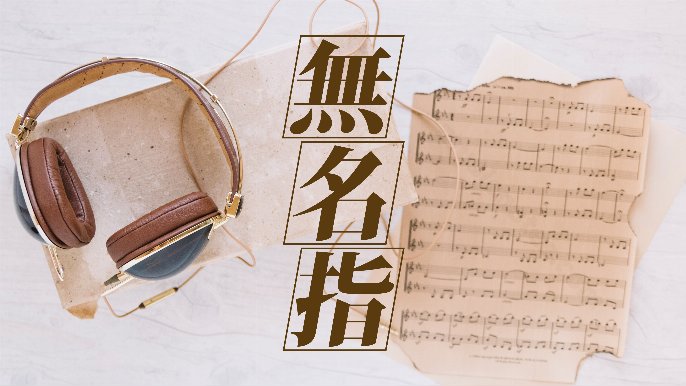 無名指